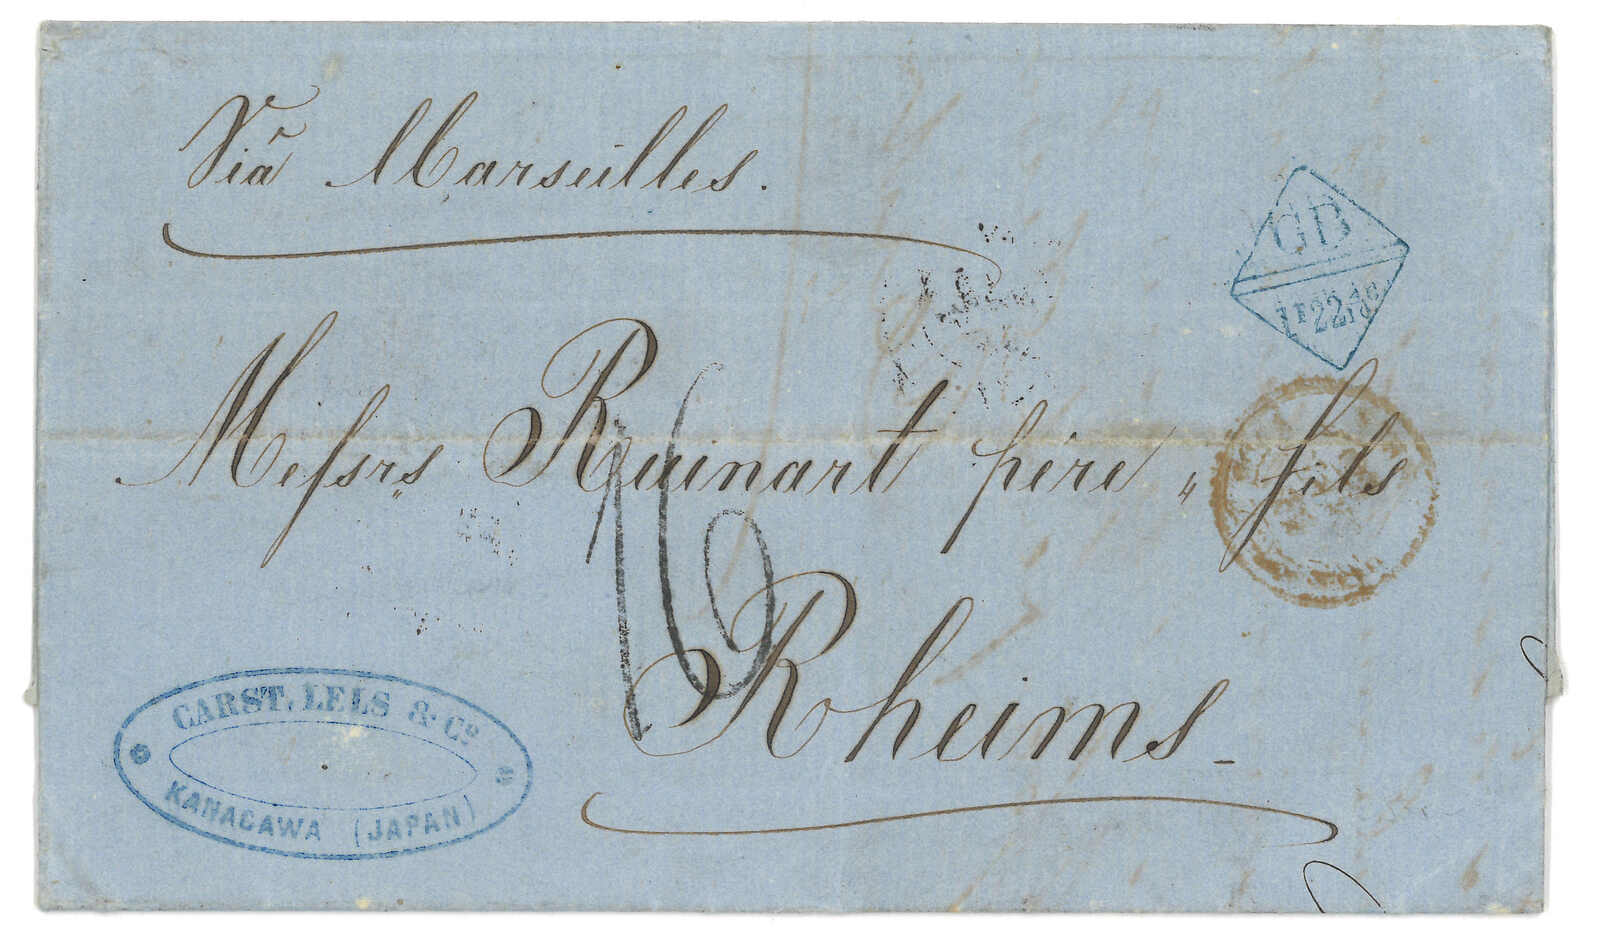 Viâ Marseilles.
GB
1F22 4/10c
Messrs Ruinart père & fils
16
Rheims
CARST. LELS & Co
KANAGAWA (JAPAN)